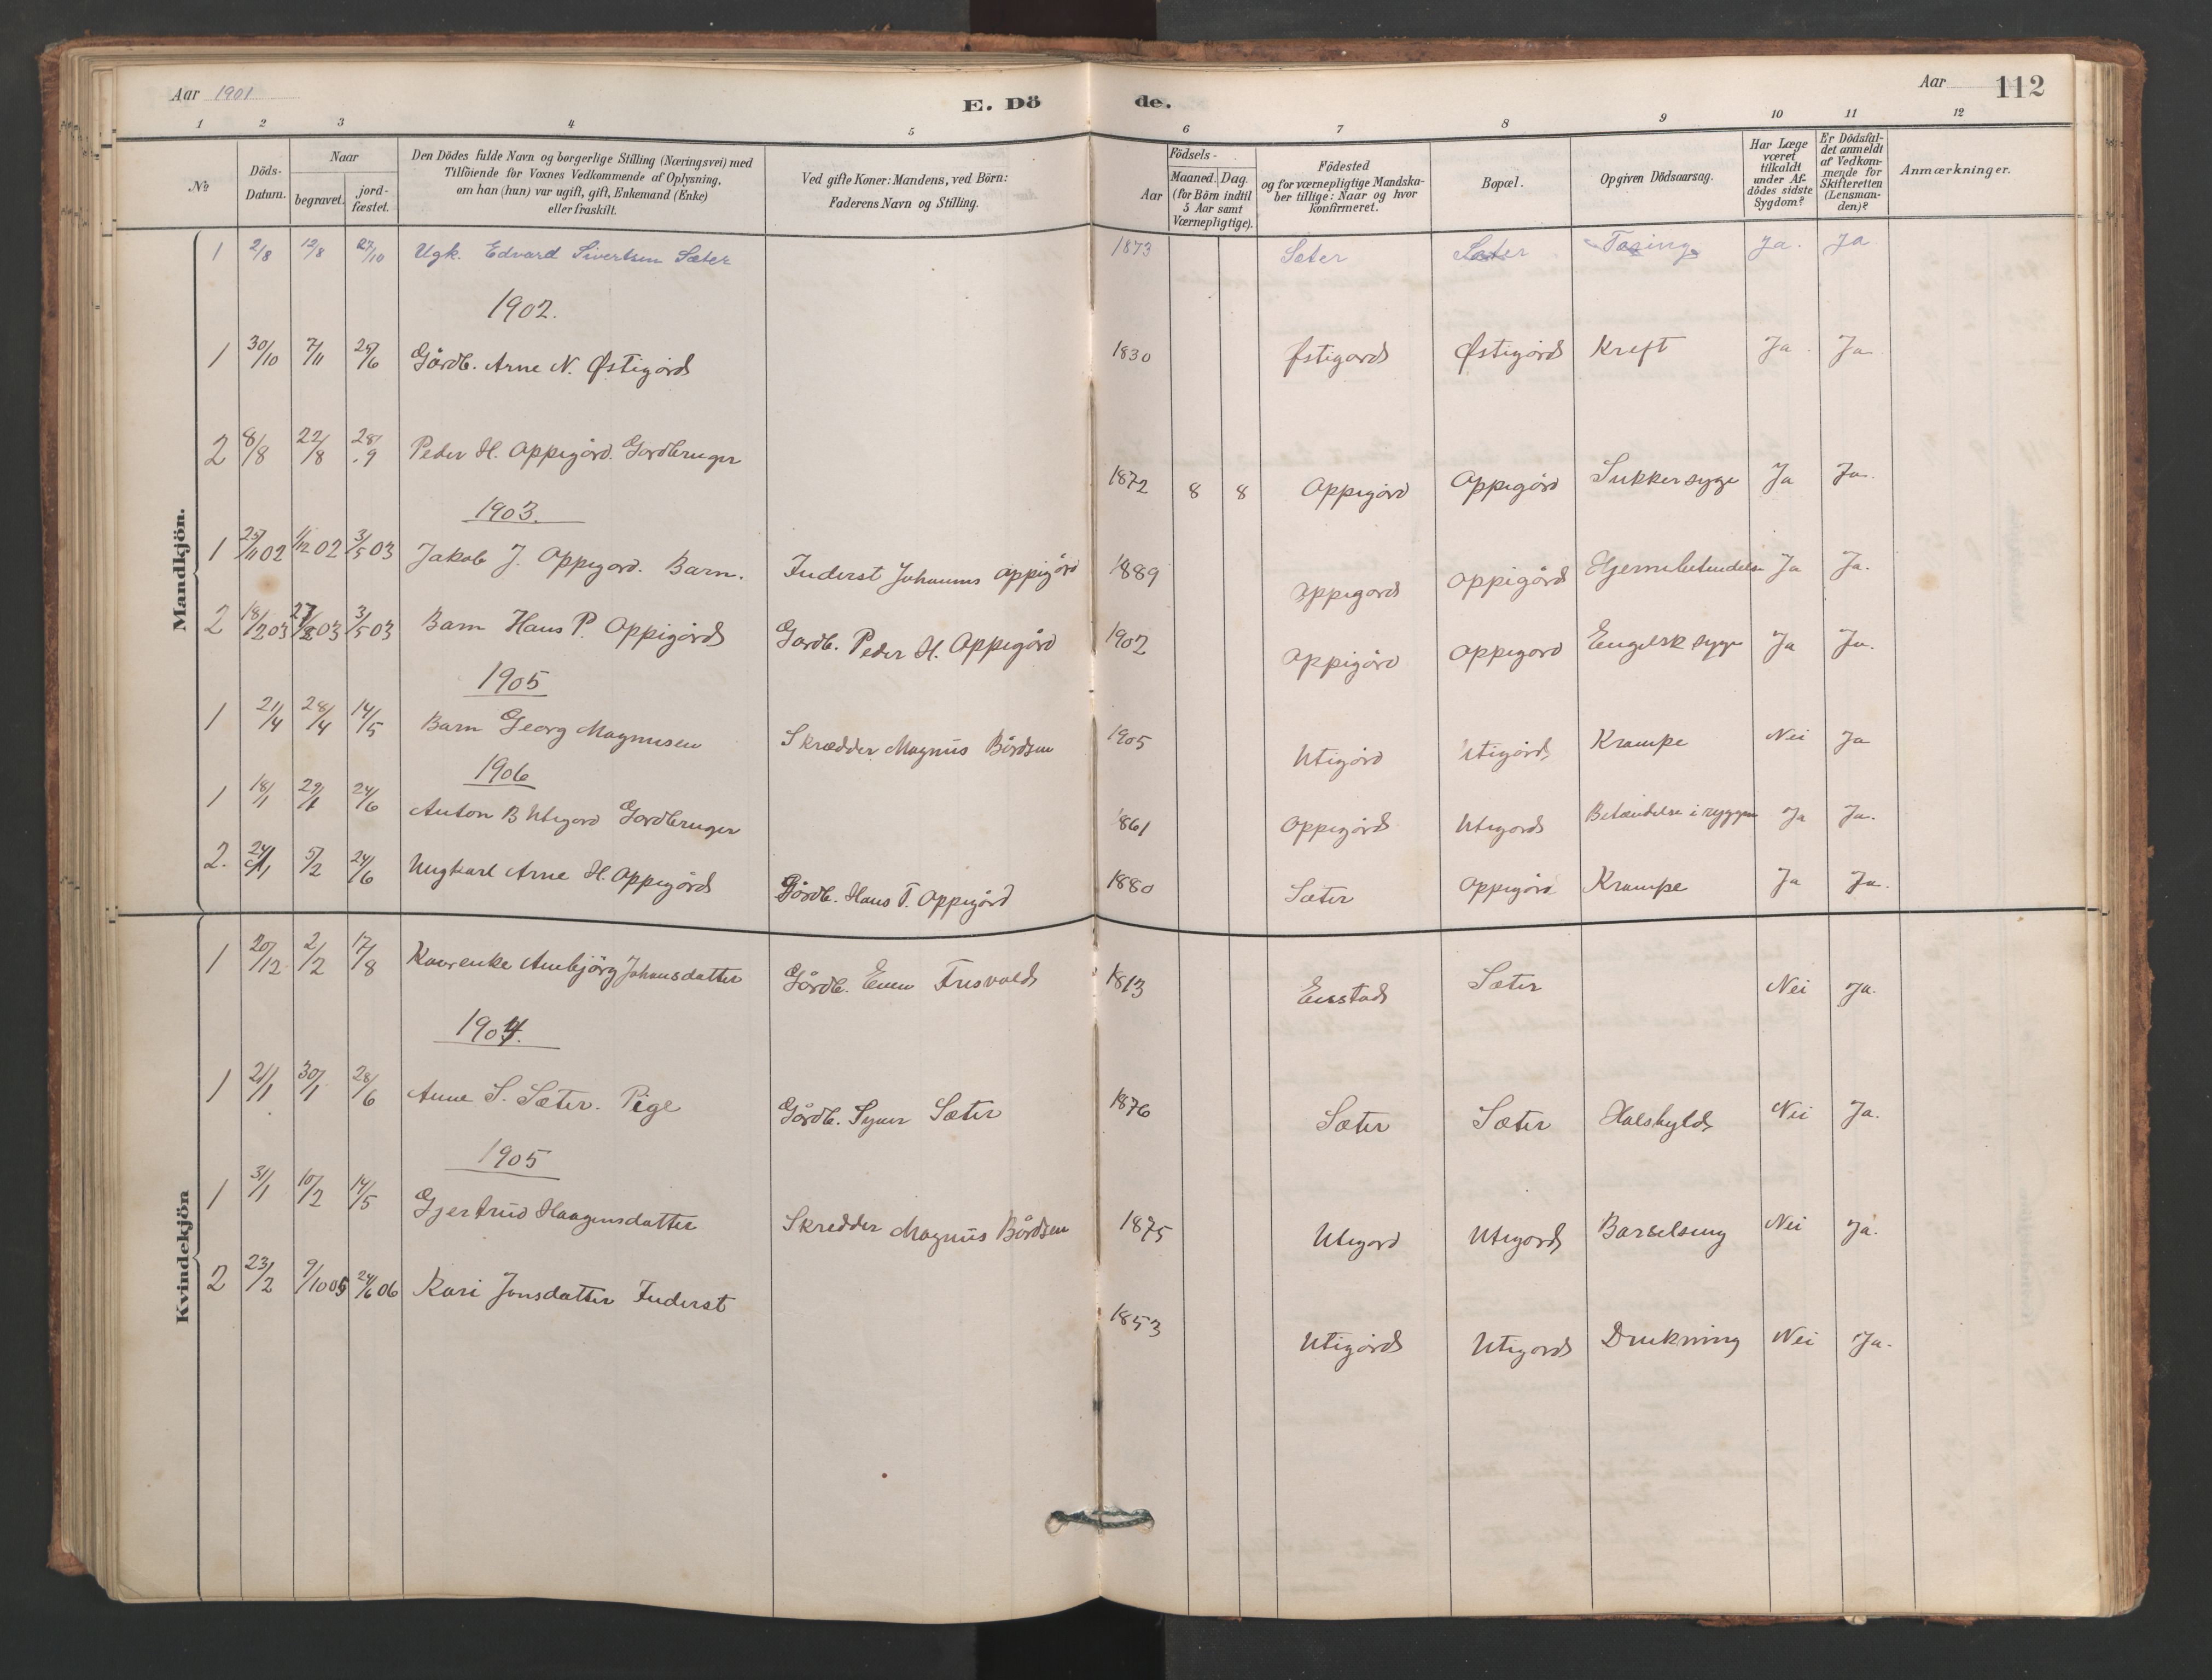 Aar 1901
E. Dö de.
Aar 112
1 2 3 4 5 6 7 8 9 10 11 12
№ Döds-Datum. Naar begravet. jord-fæstet. Den Dödes fulde Navn og borgerlige Stilling (Næringsvei) med Tilföiende for Voxnes Vedkommende af Oplysning, om han (hun) var ugift, gift, Enkemand (Enke) eller fraskilt. Ved gifte Koner: Mandens, ved Börn: Faderens Navn og Stilling. Födsels- Aar Maaned. Dag. (for Börn indtil 5 Aar samt Værnepligtige). Födested og for værnepligtige Mandska-ber tillige: Naar og hvor konfirmeret. Bopæl. Opgiven Dödsaarsag. Har Læge været tilkaldt under Af-dödes sidste Sygdom? Er Dödsfal-det anmeldt af Vedkom-mende for Skifteretten (Lensman-den)? Anmærkninger.
Mandkjön.
1 2/8 12/8 27/10 Ugk. Edvard Sivertsen Sæter 1873 Sæter Sæter Tæring Ja. Ja
1902.
1 30/10 7/11 25/6 Gårdb. Arne N. Østigård 1830 Østigard Østigård Kreft Ja. Ja.
2 8/8 22/8 28/9 Peder H. Oppigård. Gardbruger 1872 8 8 Oppigård Oppigård Sukkersyge Ja Ja.
1903.
1 25/11 02 1/12 02 3/5 03 Jakob J. Oppigard. Barn. Inderst Johannes Oppigård 1889 Oppigard Oppigård Hjernebetendelse Ja Ja.
2 18/2 03 27/2 03 3/5 03 Barn Hans P. Oppigård Gardb. Peder H. Oppigård 1902 Oppigård Oppigard Engelsk syge Ja Ja.
1905
1 21/4 28/4 14/5 Barn Georg Magnusen Skrædder Magnus Bårdsen 1905 Utigård Utigård Krampe Nei Ja
1906
1 18/1 29/1 24/6 Anton B Utigard Gardbruger 1861 Oppigård Utigard Betændelse i ryggen Ja Ja.
2. 24/1 5/2 24/6 Ungkarl Arne H. Oppigård Gårdb. Hans T. Oppigård 1880 Sæter Oppigård Krampe Ja Ja.
Kvindekjön
1 20/12 2/2 17/8 Kaarenke Anbjörg Johansdatter Gårdb. Even Trisvold 1813 Eisstad Sæter Nei Ja.
1904.
1 21/1 30/1 28/6 Anne S. Sæter. Pige Gårdb. Syver Sæter 1876 Sæter Sæter Halsbyld Nei Ja.
1905
1 31/1 10/2 14/5 Gjertrud Haagensdatter Skredder Magnus Bårdsen 1875 Utigard Utigard Barselseng Nei Ja.
2 23/2 9/10 05 24/6 06 Kari Jonsdatter Inderst 1853 Utigård Utigard Drukning Nei Ja.